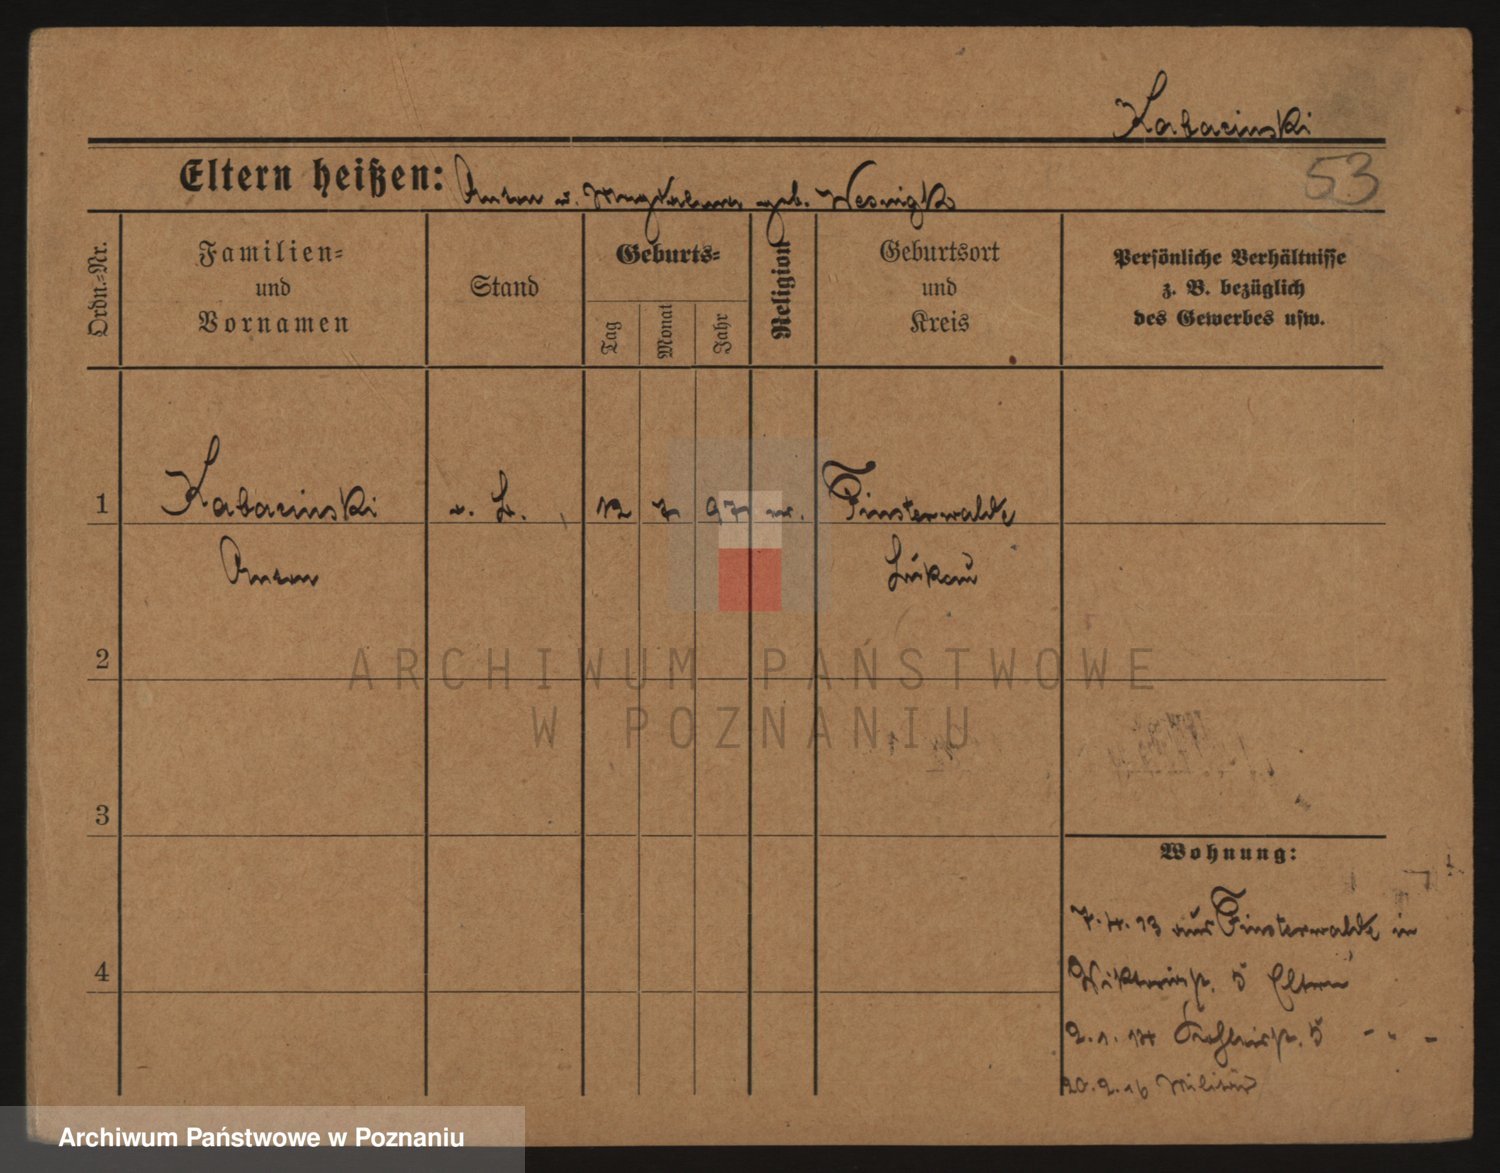 Kabacinski
Eltern heißen: Anton u. Magdalena geb. Wesnigk
53
Ordn.-Nr.
Familien-
und
Vornamen
Stand
Geburts-
Tag
Monat
Jahr
Religion
Geburtsort
und
Kreis
Persönliche Verhältnisse
z. B. bezüglich
des Gewerbes usw.
1 Kabacinski 12 7 97 Finsterwalde
Anton Lukau
2
ARCHIWUM PAŃSTWOWE
W POZNANIU
3
Wohnung:
7.4.13 aus Finsterwalde in
4
Viktoriastr. 5 Eltern
2.1.14 5 - " -
20.2.16 Militär
Archiwum Państwowe w Poznaniu